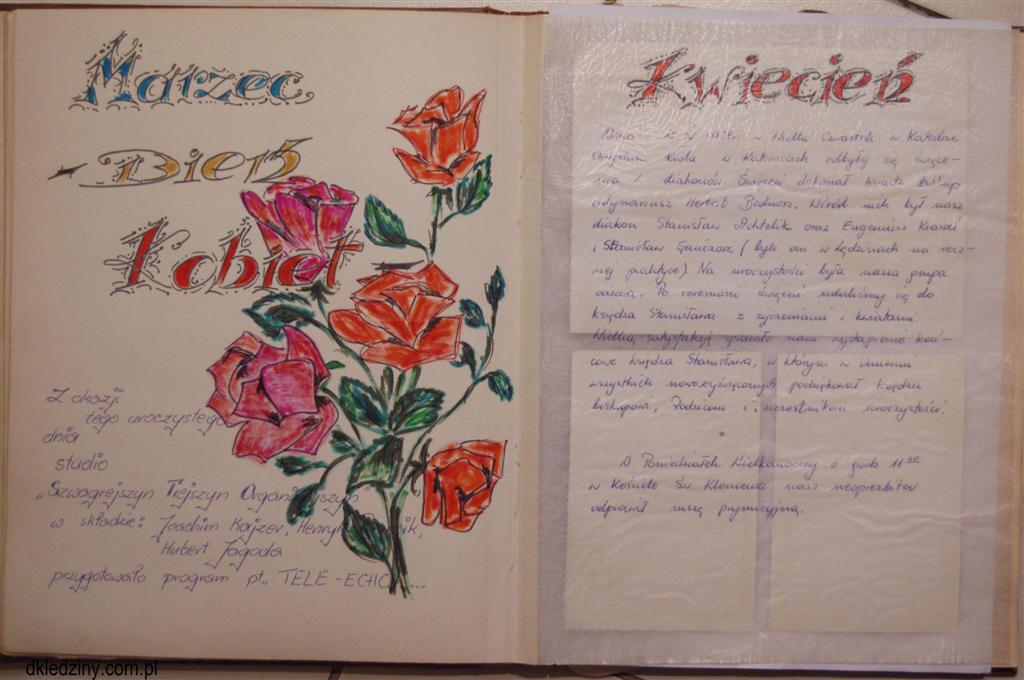 Marzec
- Dzień
Kobiet
Z okazji
tego uroczystego
dnia
studio
"Szwagrejszyn Tiejszyn Organizejszyn"
w składzie: Joachim Kajzer, Henryk
Hubert Jagoda
przygotowało program pt. "TELE-ECHO...
Kwiecień
Dnia w Wielki Czwartek w Katedrze
Chrystusa Króla w Katowicach odbyły się święce-
nia diakonów. Święceń dokonał ksiądz biskup
ordynariusz Herbert Bednorz. Wśród nich był nasz
diakon Stanisław Achtelik oraz Eugeniusz
i Stanisław Gańczorz (byli oni w Lędzinach na rocz-
nej praktyce). Na uroczystości była nasza grupa
oazowa. Po ceremonii święceń udaliśmy się do
księdza Stanisława z życzeniami i kwiatami.
Wielką satysfakcję sprawiło nam wystąpienie koń-
cowe księdza Stanisława, w którym w imieniu
wszystkich nowowyświęconych podziękował księdzu
biskupowi, rodzicom i uczestnikom uroczystości.
W Poniedziałek Wielkanocny o godz 11⁰⁰
w Kościele Św. Klemensa nasz neoprezbiter
odprawił mszę prymicyjną.
dkledziny.com.pl